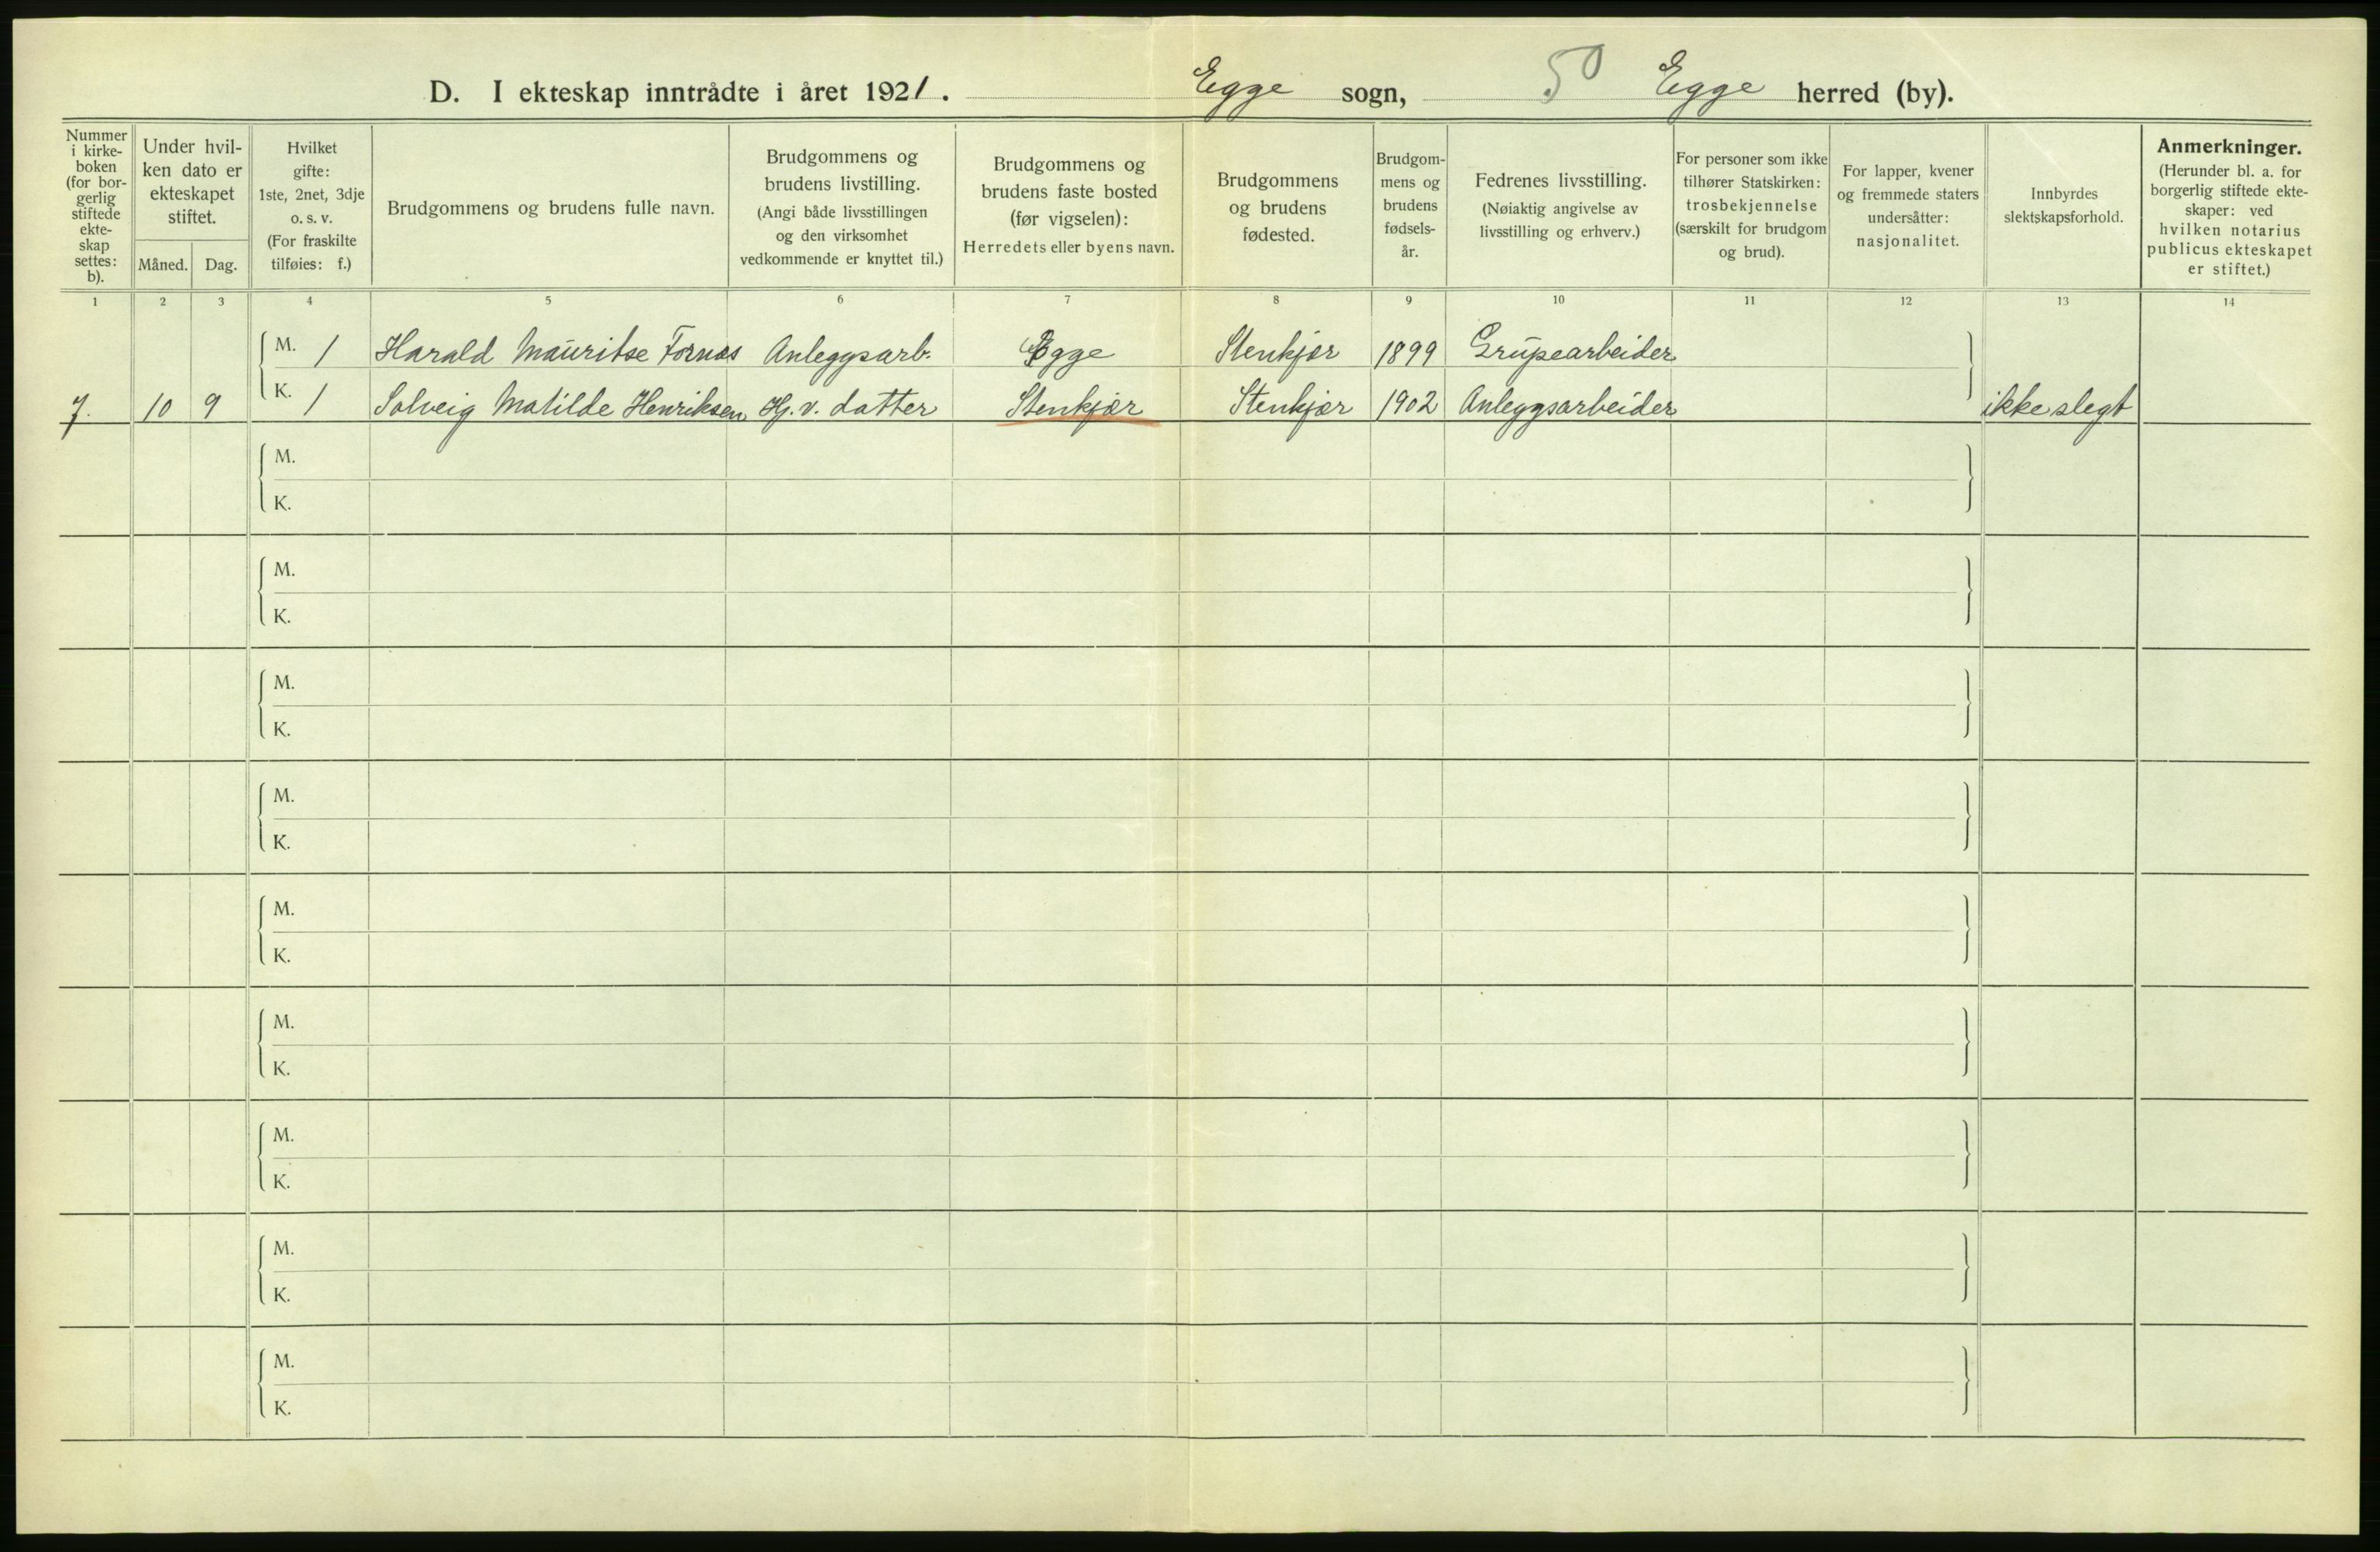 D. I ekteskap inntrådte i året 1921. Egge sogn, 50 Egge herred (by).
Nummer i kirke-boken (for bor-gerlig stiftede ekte-skap settes: b).
Under hvil-ken dato er ekteskapet stiftet.
Måned. Dag.
Hvilket gifte: 1ste, 2net, 3dje o. s. v. (For fraskilte tilføies: f.)
Brudgommens og brudens fulle navn.
Brudgommens og brudens livstilling. (Angi både livsstillingen og den virksomhet vedkommende er knyttet til.)
Brudgommens og brudens faste bosted (før vigselen): Herredets eller byens navn.
Brudgommens og brudens fødested.
Brudgom-mens og brudens fødsels-år.
Fedrenes livsstilling. (Nøiaktig angivelse av livsstilling og erhverv.)
For personer som ikke tilhører Statskirken: trosbekjennelse (særskilt for brudgom og brud).
For lapper, kvener og fremmede staters undersåtter: nasjonalitet.
Innbyrdes slektskapsforhold.
Anmerkninger. (Herunder bl. a. for borgerlig stiftede ekte-skaper: ved hvilken notarius publicus ekteskapet er stiftet.)
1 2 3 4 5 6 7 8 9 10 11 12 13 14
M. 1 Harald Mauritse Fornes Anleggsarb. Egge Stenkjær 1899 Grupearbeider
7. 10 9 K. 1 Solveig Matilde Henriksen Hj. v. datter Stenkjær Stenkjær 1902 Anleggsarbeider ikke slegt
M.
K.
M.
K.
M.
K.
M.
K.
M.
K.
M.
K.
M.
K.
M.
K.
M.
K.